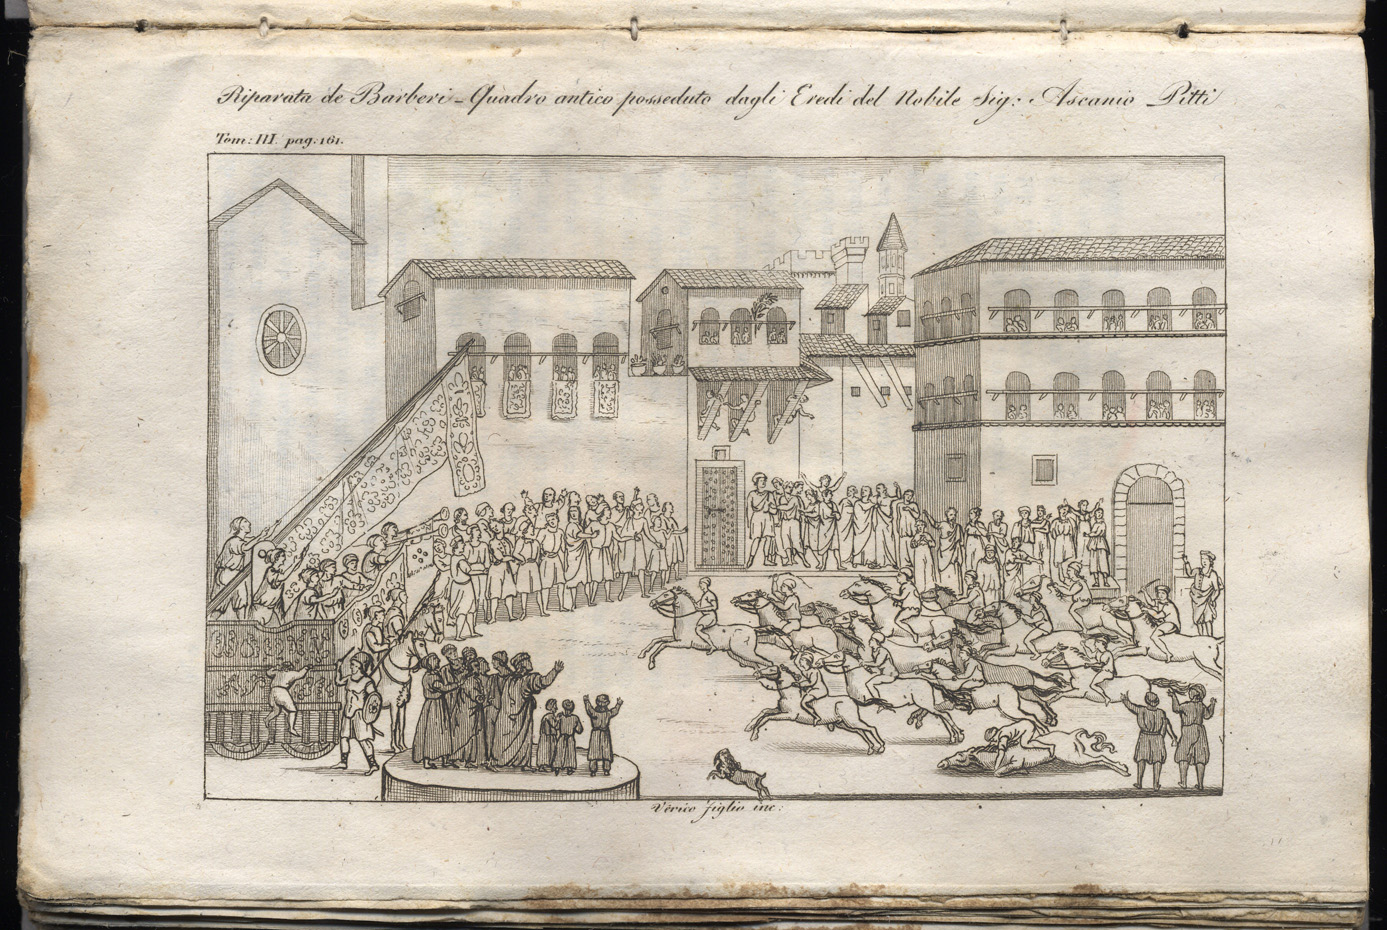 Riparata de Barberi - Quadro antico posseduto dagli Eredi del Nobile Sig: Ascanio Pitti
Tom: III. pag: 161.
Verico figlio inc: